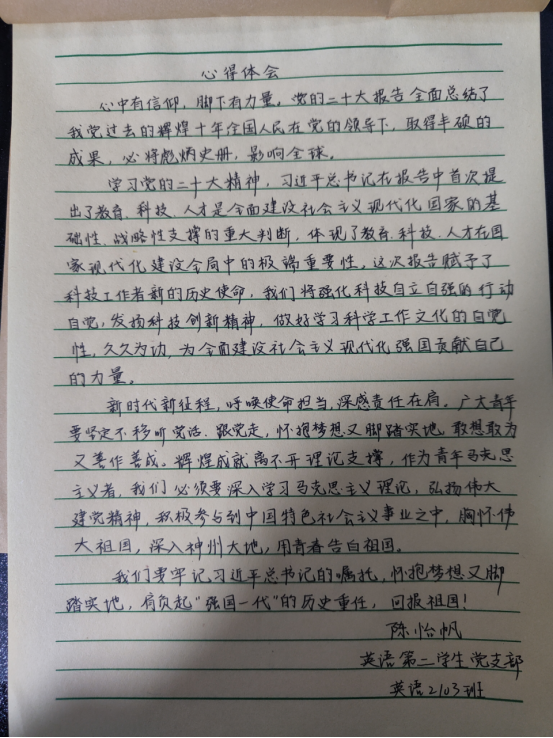 心得体会
心中有信仰，脚下有力量。党的二十大报告全面总结了
我党过去的辉煌十年全国人民在党的领导下，取得丰硕的
成果，必将彪炳史册，影响全球。
学习党的二十大精神，习近平总书记在报告中首次提
出了教育、科技、人才是全面建设社会主义现代化国家的基
础性、战略性支撑的重大判断，体现了教育、科技、人才在国
家现代化建设全局中的极端重要性。这次报告赋予了
科技工作者新的历史使命，我们将强化科技自立自强的行动
自觉，发扬科技创新精神，做好学习科学工作文化的自觉
性，久久为功，为全面建设社会主义现代化强国贡献自己
的力量。
新时代新征程，呼唤使命担当，深感责任在肩。广大青年
要坚定不移听党话、跟党走，怀抱梦想又脚踏实地，敢想敢为
又善作善成。辉煌成就离不开理论支撑，作为青年马克思
主义者，我们必须要深入学习马克思主义理论，弘扬伟大
建党精神，积极参与到中国特色社会主义事业之中，胸怀伟
大祖国，深入神州大地，用青春告白祖国。
我们要牢记习近平总书记的嘱托，怀抱梦想又脚
踏实地，肩负起“强国一代”的历史重任，回报祖国！
陈怡帆
英语第二学生党支部
英语2103班